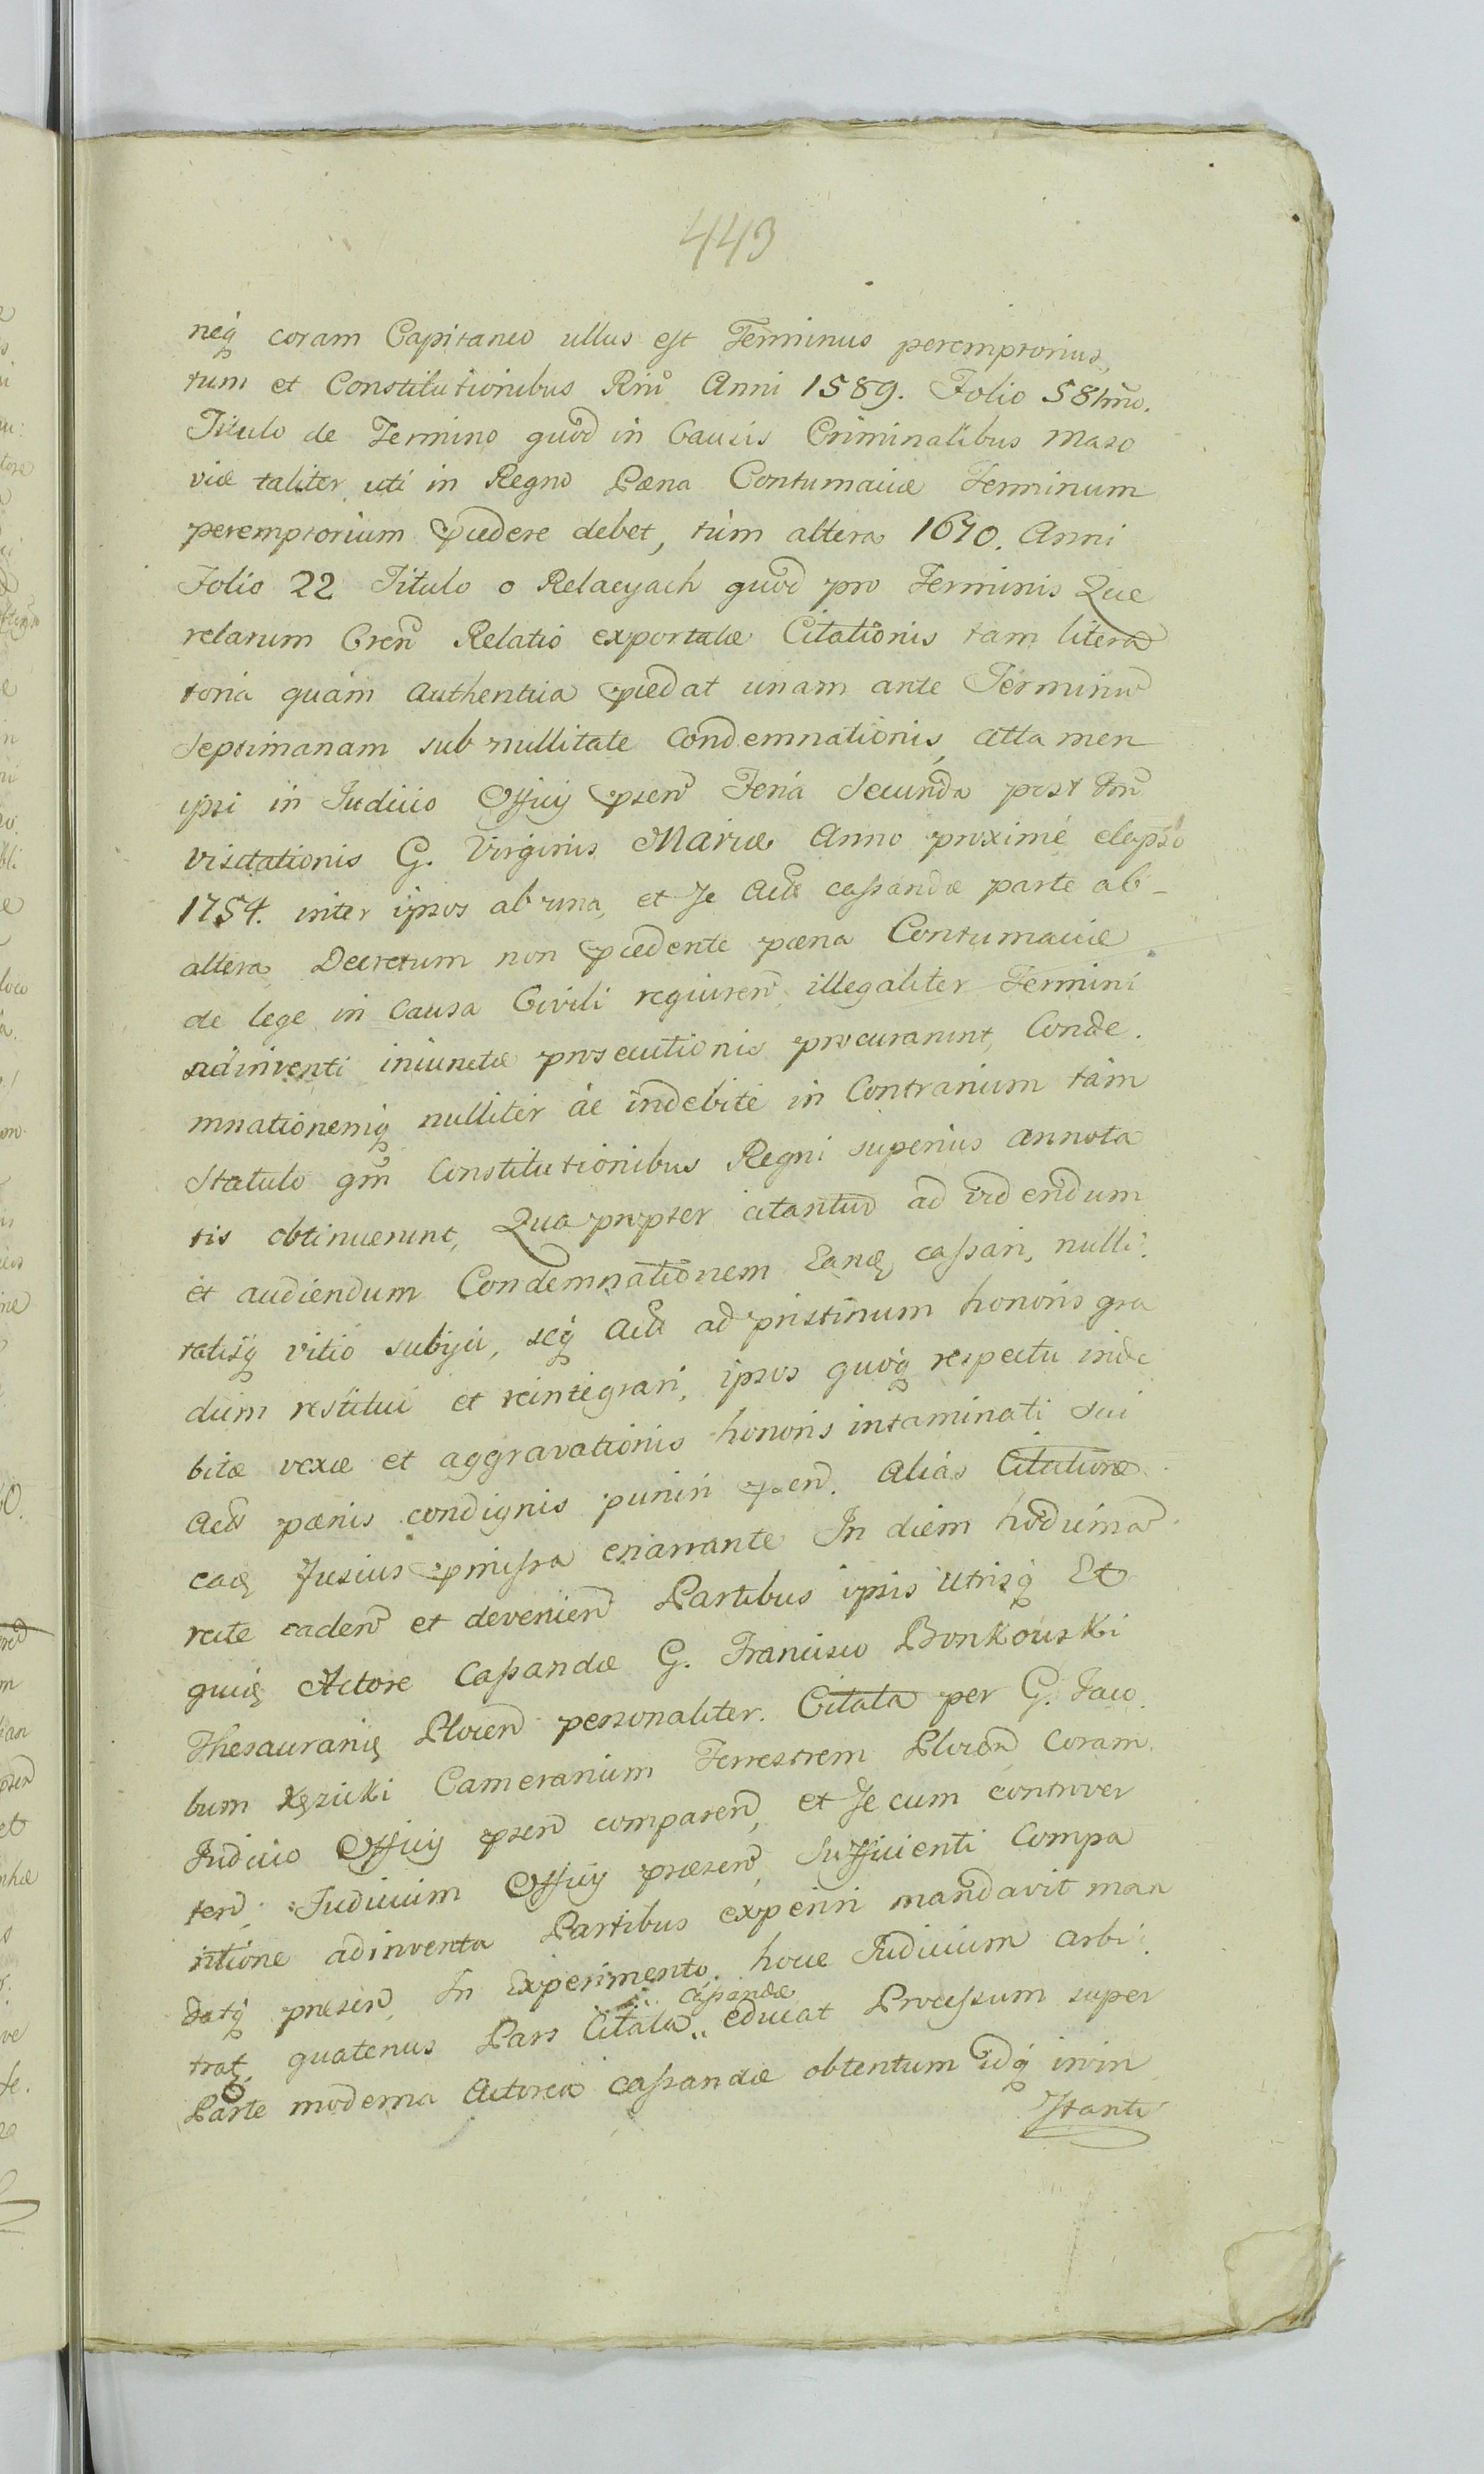 443
neq coram Capitaneo ullus est Terminus peremptorius,
tum et Constitutionibus Rni Anni 1589. Folio 581mo.
Titulo de Termino quod in Causis Criminalibus Maso
viæ taliter uti in Regno Pæna Contumaciæ Terminum
peremptorium præcedere debet, tùm altera 1670. Anni
Folio 22 Titulo o Relacyach quod pro Terminis Que
relarum Gren Relatio exportatæ Citationis tam litera
toria quàm authentica præcedat unam ante Terminu
Septimanam sub nullitate condemnationis, atta men
ipsi in Iudicio Officij præsen Feria Secunda post
Visitationis G. Virginis Mariæ Anno proximè elapso
1754. inter ipsos ab una, et se cassandæ parte ab-
altera Decretum non præcedente pæna Contumaciæ
de lege in Causa Civili requisen illegaliter Termini
adinventi iniunctæ prosecutionis procurarunt, Conde.
mnationemq nulliter ac indebitè in Contrarium tàm
Statuto qm Constitutionibus Regni superius annota
tis obtinuerunt, Qua propter citantur ad videndum
et audiendum Condemnationem Eand cassari, nulli.
tatisq vitio subijci, seq ad pristinum honoris gra
dum restitui et reintegrari, ipsos quoq respectu inde
bitæ vexæ et aggravationis honoris intaminati sui
pænis condignis puniri Alias Citatione
ead fusius præmissa enarrante In diem hodierna
recte caden et devenien Partibus ipsis utrisq Et
quid Actore Cassandæ G. Francisco Bonkowski
Thesaurarid Plocen personaliter. Citata per G. Jaco.
bum Kęsicki Camerarium Terrestrem Plocen Coram
Iudicio Officij præsen comparen, et se cum controver
ten, Iudicium Officij præsen, Sufficienti Compa
ritione adinventa Partibus experiri mandavit man
datq præsen, In Experimento hocce Iudicium arbi.
trat, quatenus Pars Citata Cassandæ educat Processum super
Parte moderna Actorea cassandæ obtentum idq in in
stanti